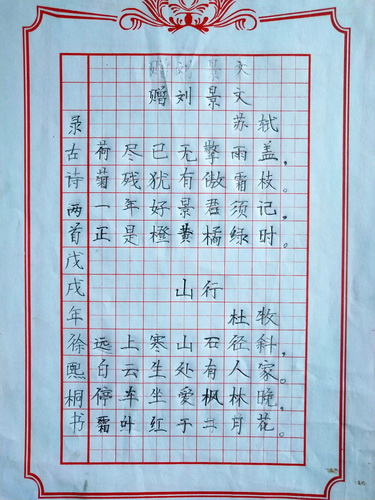 赠刘景文
赠刘景文
苏轼
荷尽已无擎雨盖，
菊残犹有傲霜枝。
一年好景君须记，
正是橙黄橘绿时。
山行
杜牧
远上寒山石径斜，
白云生处有人家。
停车坐愛枫林晚，
霜叶红于二月花。
录古诗两首戊戌年徐熙桐书